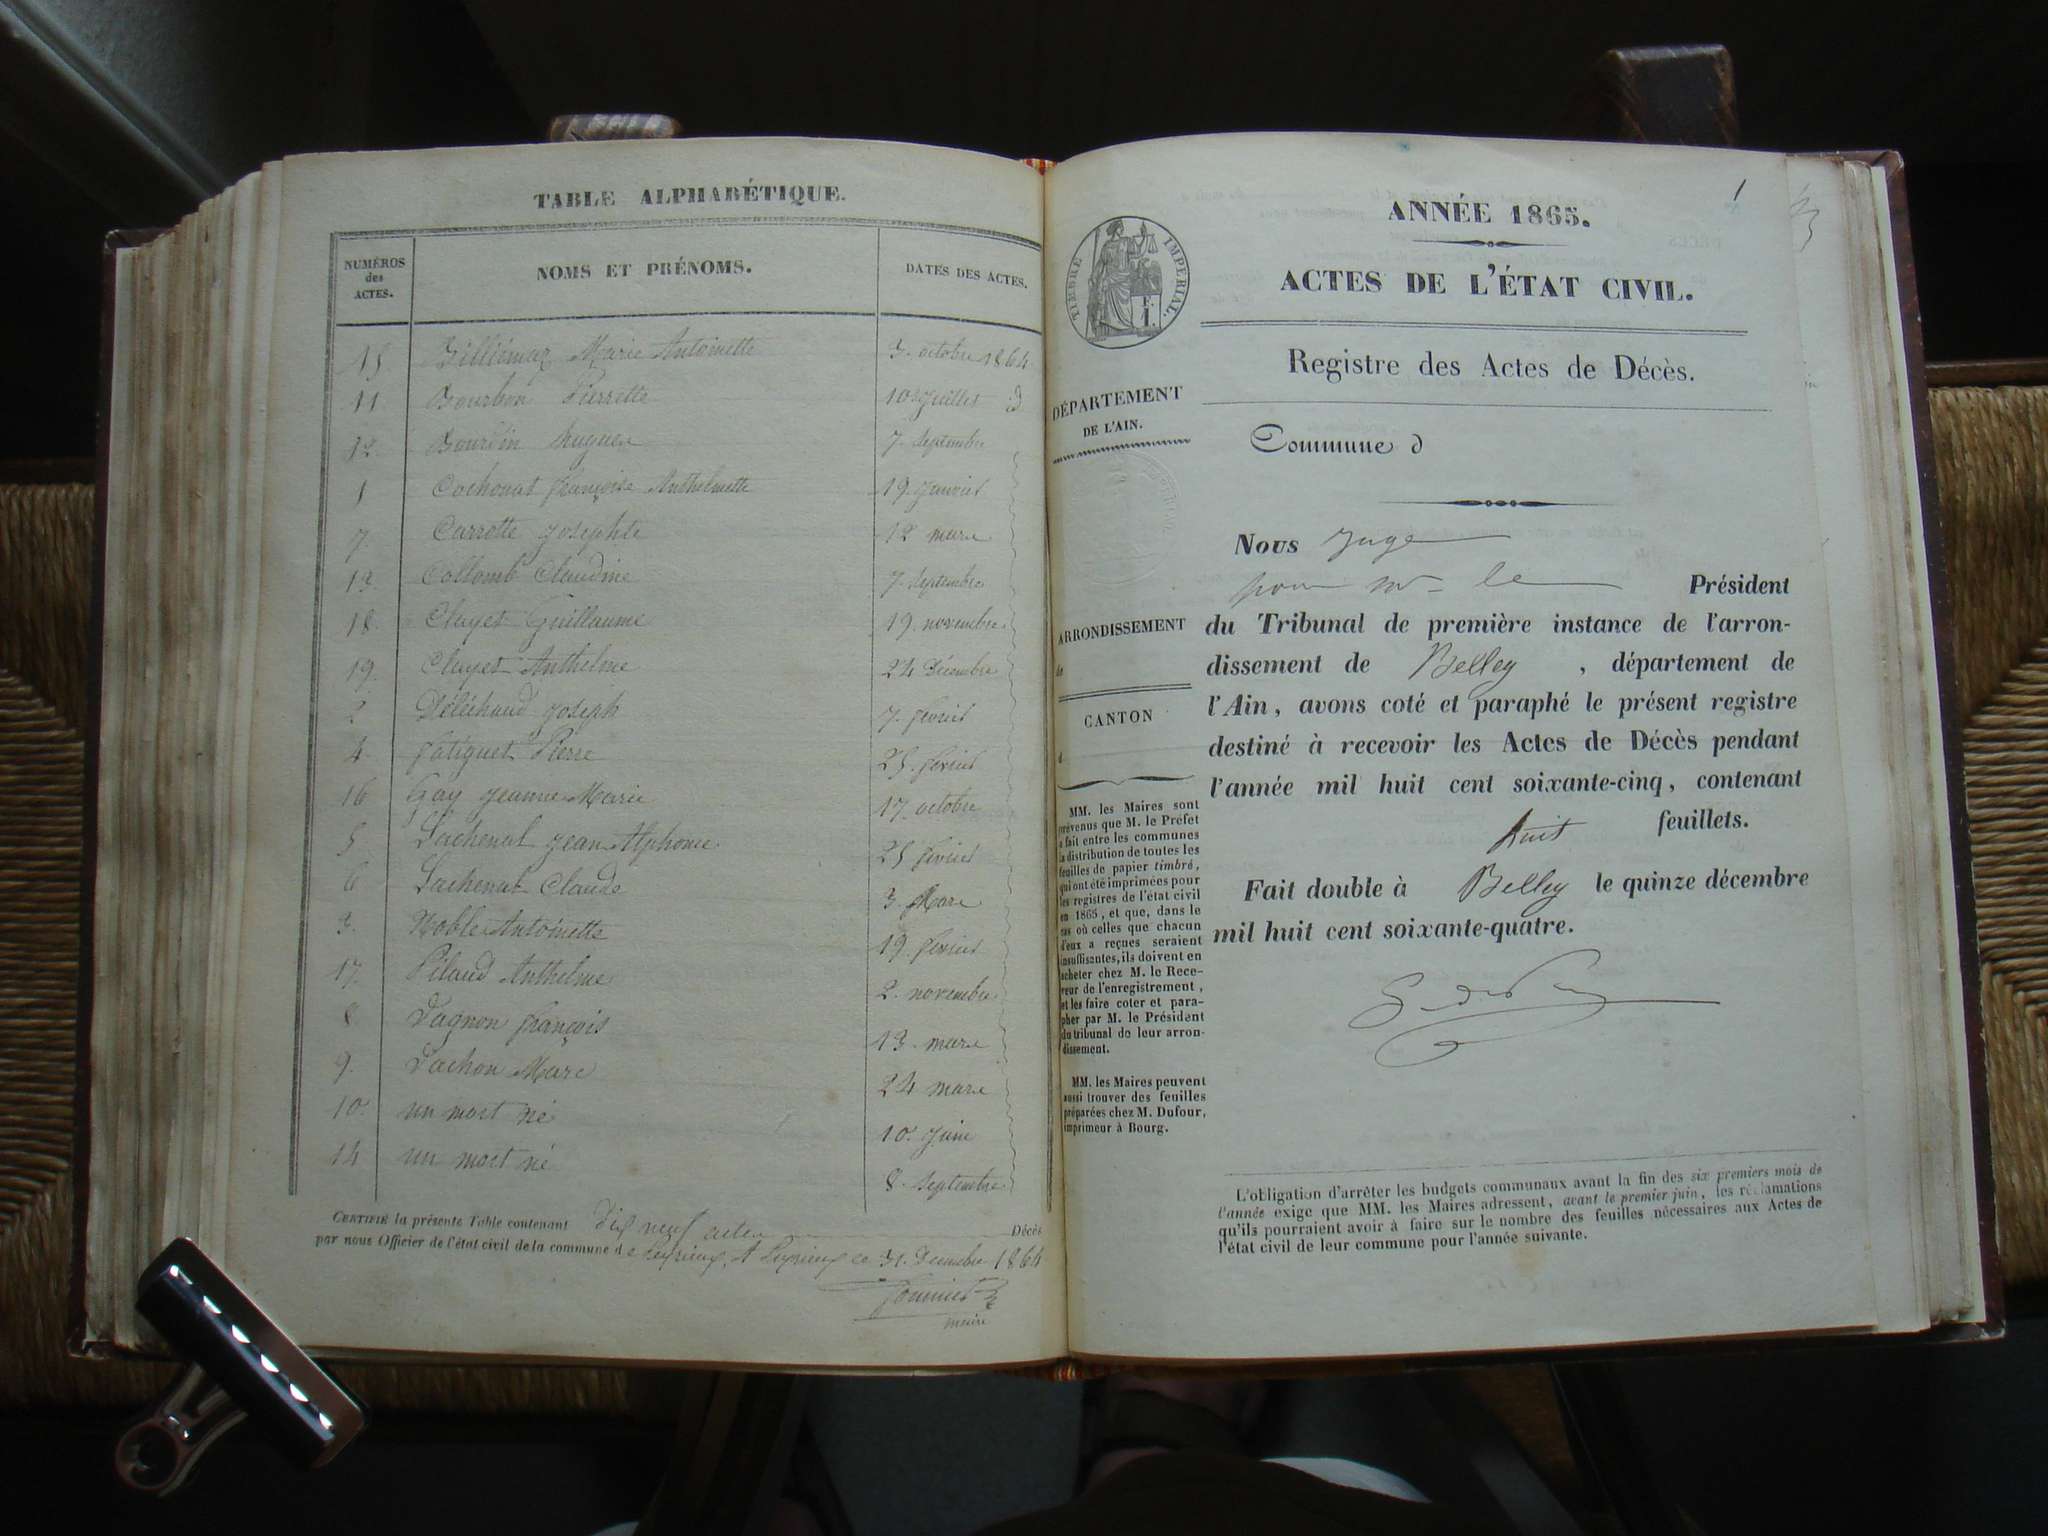 TABLE ALPHABÉTIQUE.
NUMÉROS des ACTES.
NOMS ET PRÉNOMS.
DATES DES ACTES.
15 Billiémaz Marie Antoinette 3. octobre 1864
11 Bourbon Pierrette 10 Juillet
12. Bourbon 7. Septembre
1 Cochonat françoise Anthelmette 19. Janvier
7. Carrotte Josephte 12 mars
13. Collomb Claudine 7. Septembre
18. Clayet Guillaume 19. novembre
19. Clayet Anthelme 24 Décembre
2 Joseph 7. fevrier
4. fatiguet Pierre 25. fevrier
16 Gay Jeanne Marie 17. octobre
5. Lachenal Jean Alphonse 25 fevrier
6 Lachenal Claude 3. Mars
3. Noble Antoinette 19. fevrier
17. Pilaud Anthelme 2. novembre
8. françois 13. mars
9. Marc 24 mars
10. un mort né 10. Juin
14 un mort né 8. Septembre
CERTIFIÉ la présente Table contenant dix neuf actes Décès
par nous Officier de l'état civil de la commune de ce 31. Décembre 1864
maire
1
ANNÉE 1865.
ACTES DE L'ÉTAT CIVIL.
TIMBRE IMPÉRIAL.
Registre des Actes de Décès.
DÉPARTEMENT
DE L'AIN.
Commune d
Nous Juge
pour mr le Président
ARRONDISSEMENT
de
CANTON
d
du Tribunal de première instance de l'arron-
dissement de Belley, département de
l'Ain, avons coté et paraphé le présent registre
destiné à recevoir les Actes de Décès pendant
l'année mil huit cent soixante-cinq, contenant
huit feuillets.
Fait double à Belley le quinze décembre
mil huit cent soixante-quatre.
MM. les Maires sont
prévenus que M. le Préfet
a fait entre les communes
la distribution de toutes les
feuilles de papier timbré,
qui ont été imprimées pour
les registres de l'état civil
en 1865, et que, dans le
cas où celles que chacun
d'eux a reçues seraient
insuffisantes, ils doivent en
acheter chez M. le Rece-
veur de l'enregistrement,
et les faire coter et para-
pher par M. le Président
du tribunal de leur arron-
dissement.
MM. les Maires peuvent
aussi trouver des feuilles
préparées chez M. Dufour,
imprimeur à Bourg.
L'obligation d'arrêter les budgets communaux avant la fin des six premiers mois de
l'année exige que MM. les Maires adressent, avant le premier juin, les réclamations
qu'ils pourraient avoir à faire sur le nombre des feuilles nécessaires aux Actes de
l'état civil de leur commune pour l'année suivante.